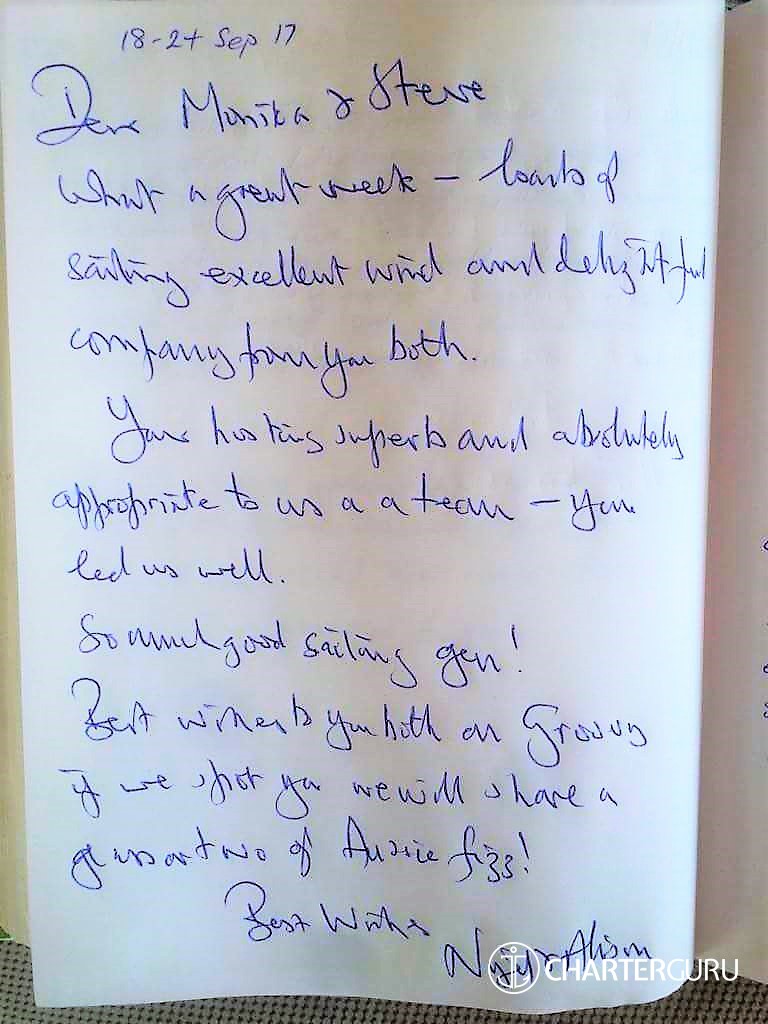 18-24 Sep 17
Dear Monika & Steve
What a great week - loads of
sailing excellent wind and delightful
company from you both.
Your hosting superb and absolutely
appropriate to us a a team - you
led us well.
So much good sailing gen!
Best wishes to you both on Groovy
if we spot you we will share a
glass or two of Aussie fizz!
Best Wishes
& Alison
CHARTERGURU